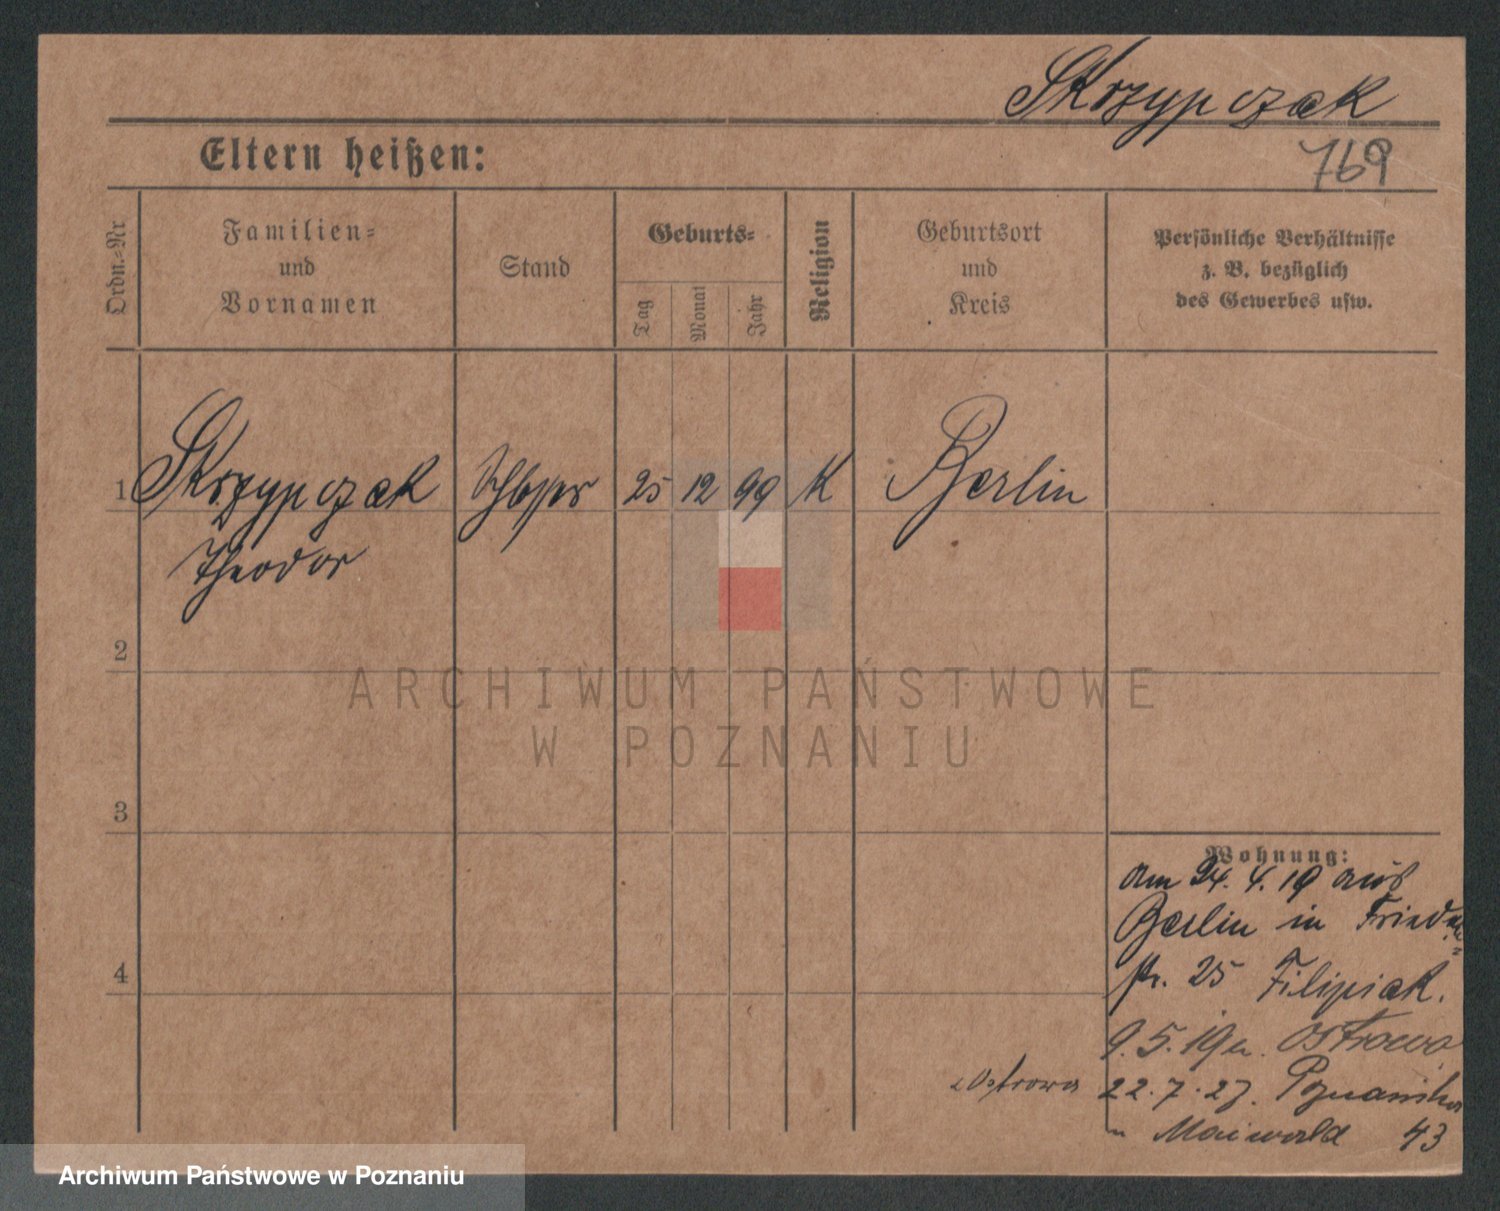 Skrzypczak
Eltern heißen:
769
Ordn.-Nr
Familien-
und
Vornamen
Stand
Geburts-
Tag
Monat
Jahr
Religion
Geburtsort
und
Kreis
Persönliche Verhältnisse
z. B. bezüglich
des Gewerbes usw.
1 Skrzypczak Schlosser 25 12 99 K Berlin
Theodor
2
ARCHIWUM PAŃSTWOWE
W POZNANIU
3
Wohnung:
am 24. 4. 19 aus
Berlin in
str. 25 Filipiak.
9. 5. 19 n. Ostrowo
Ostrowo 22. 7. 27.
n Maiwald 43
4
Archiwum Państwowe w Poznaniu